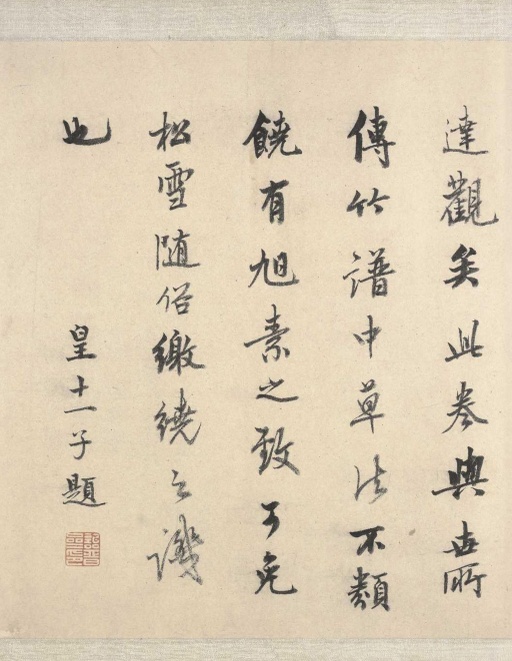 達觀矣此卷與世所
傳竹譜中草法不類
饒有旭素之致可免
松雪随俗繳繞之譏
也
皇十一子題